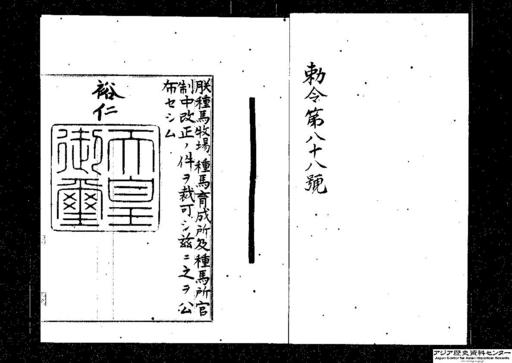 勅令第八十八號
朕種馬牧場、種馬育成所及種馬所官
制中改正ノ件ヲ裁可シ茲ニ之ヲ公
布セシム
裕仁
天皇
御璽
アジア歴史資料センター
Japan Center for Asian Historical Records